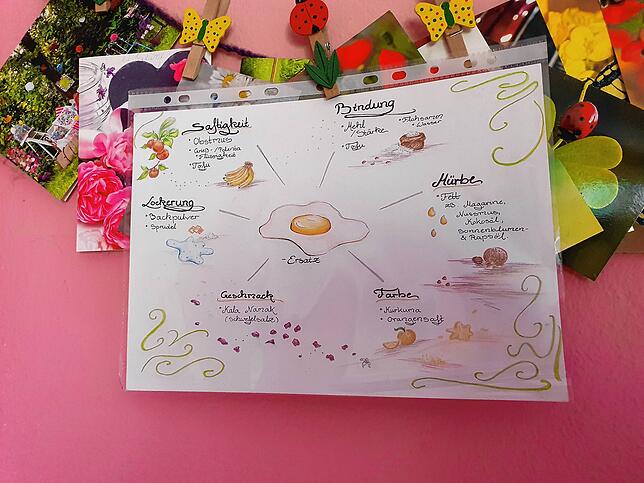 Saftigkeit
• Obstmus
• Grieß-/Polenta
Flüssigkeit
• Tofu
Bindung
• Mehl
/Stärke
• Tofu
• Flohsamen
+ Wasser
Mürbe
• Fett
zB Magarine,
Nussmus,
Kokosöl,
Sonnenblumen-
& Rapsöl.
Lockerung
• Backpulver
• Sprudel
- Ersatz
Geschmack
• Kala Namak
(Schwefelsalz)
Farbe
• Kurkuma
• Orangensaft